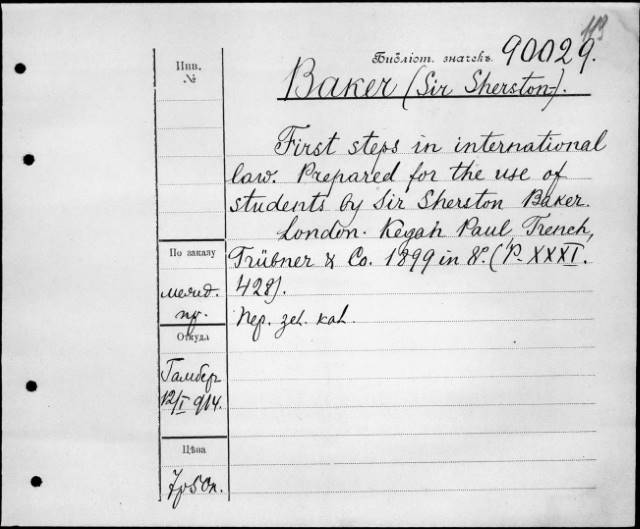 113
Библіот. значекъ 90029.
Инв.
№
Baker (Sir Sherston-).
First steps in international
law. Prepared for the use of
students by Sir Sherston Baker.
London. Kegan Paul, Trench,
По заказу
Trübner & Co. 1899 in 8º. (P. XXXI.
межд.
428).
пр.
Пер. зел. кал.
Откуда
Гамбер
12/I 914.
Цѣна
7р50к.